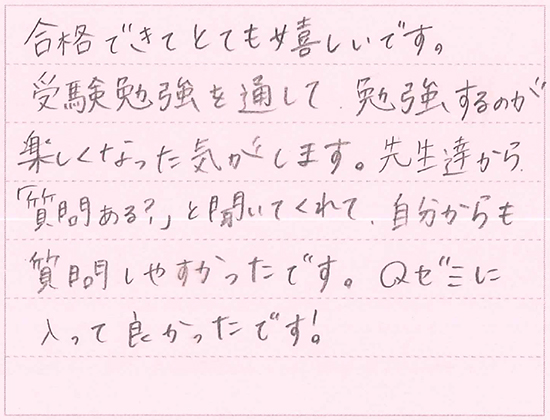 合格できてとても嬉しいです。
受験勉強を通して、勉強するのが
楽しくなった気がします。先生達から
「質問ある?」と聞いてくれて、自分からも
質問しやすかったです。Qゼミに
入って良かったです!